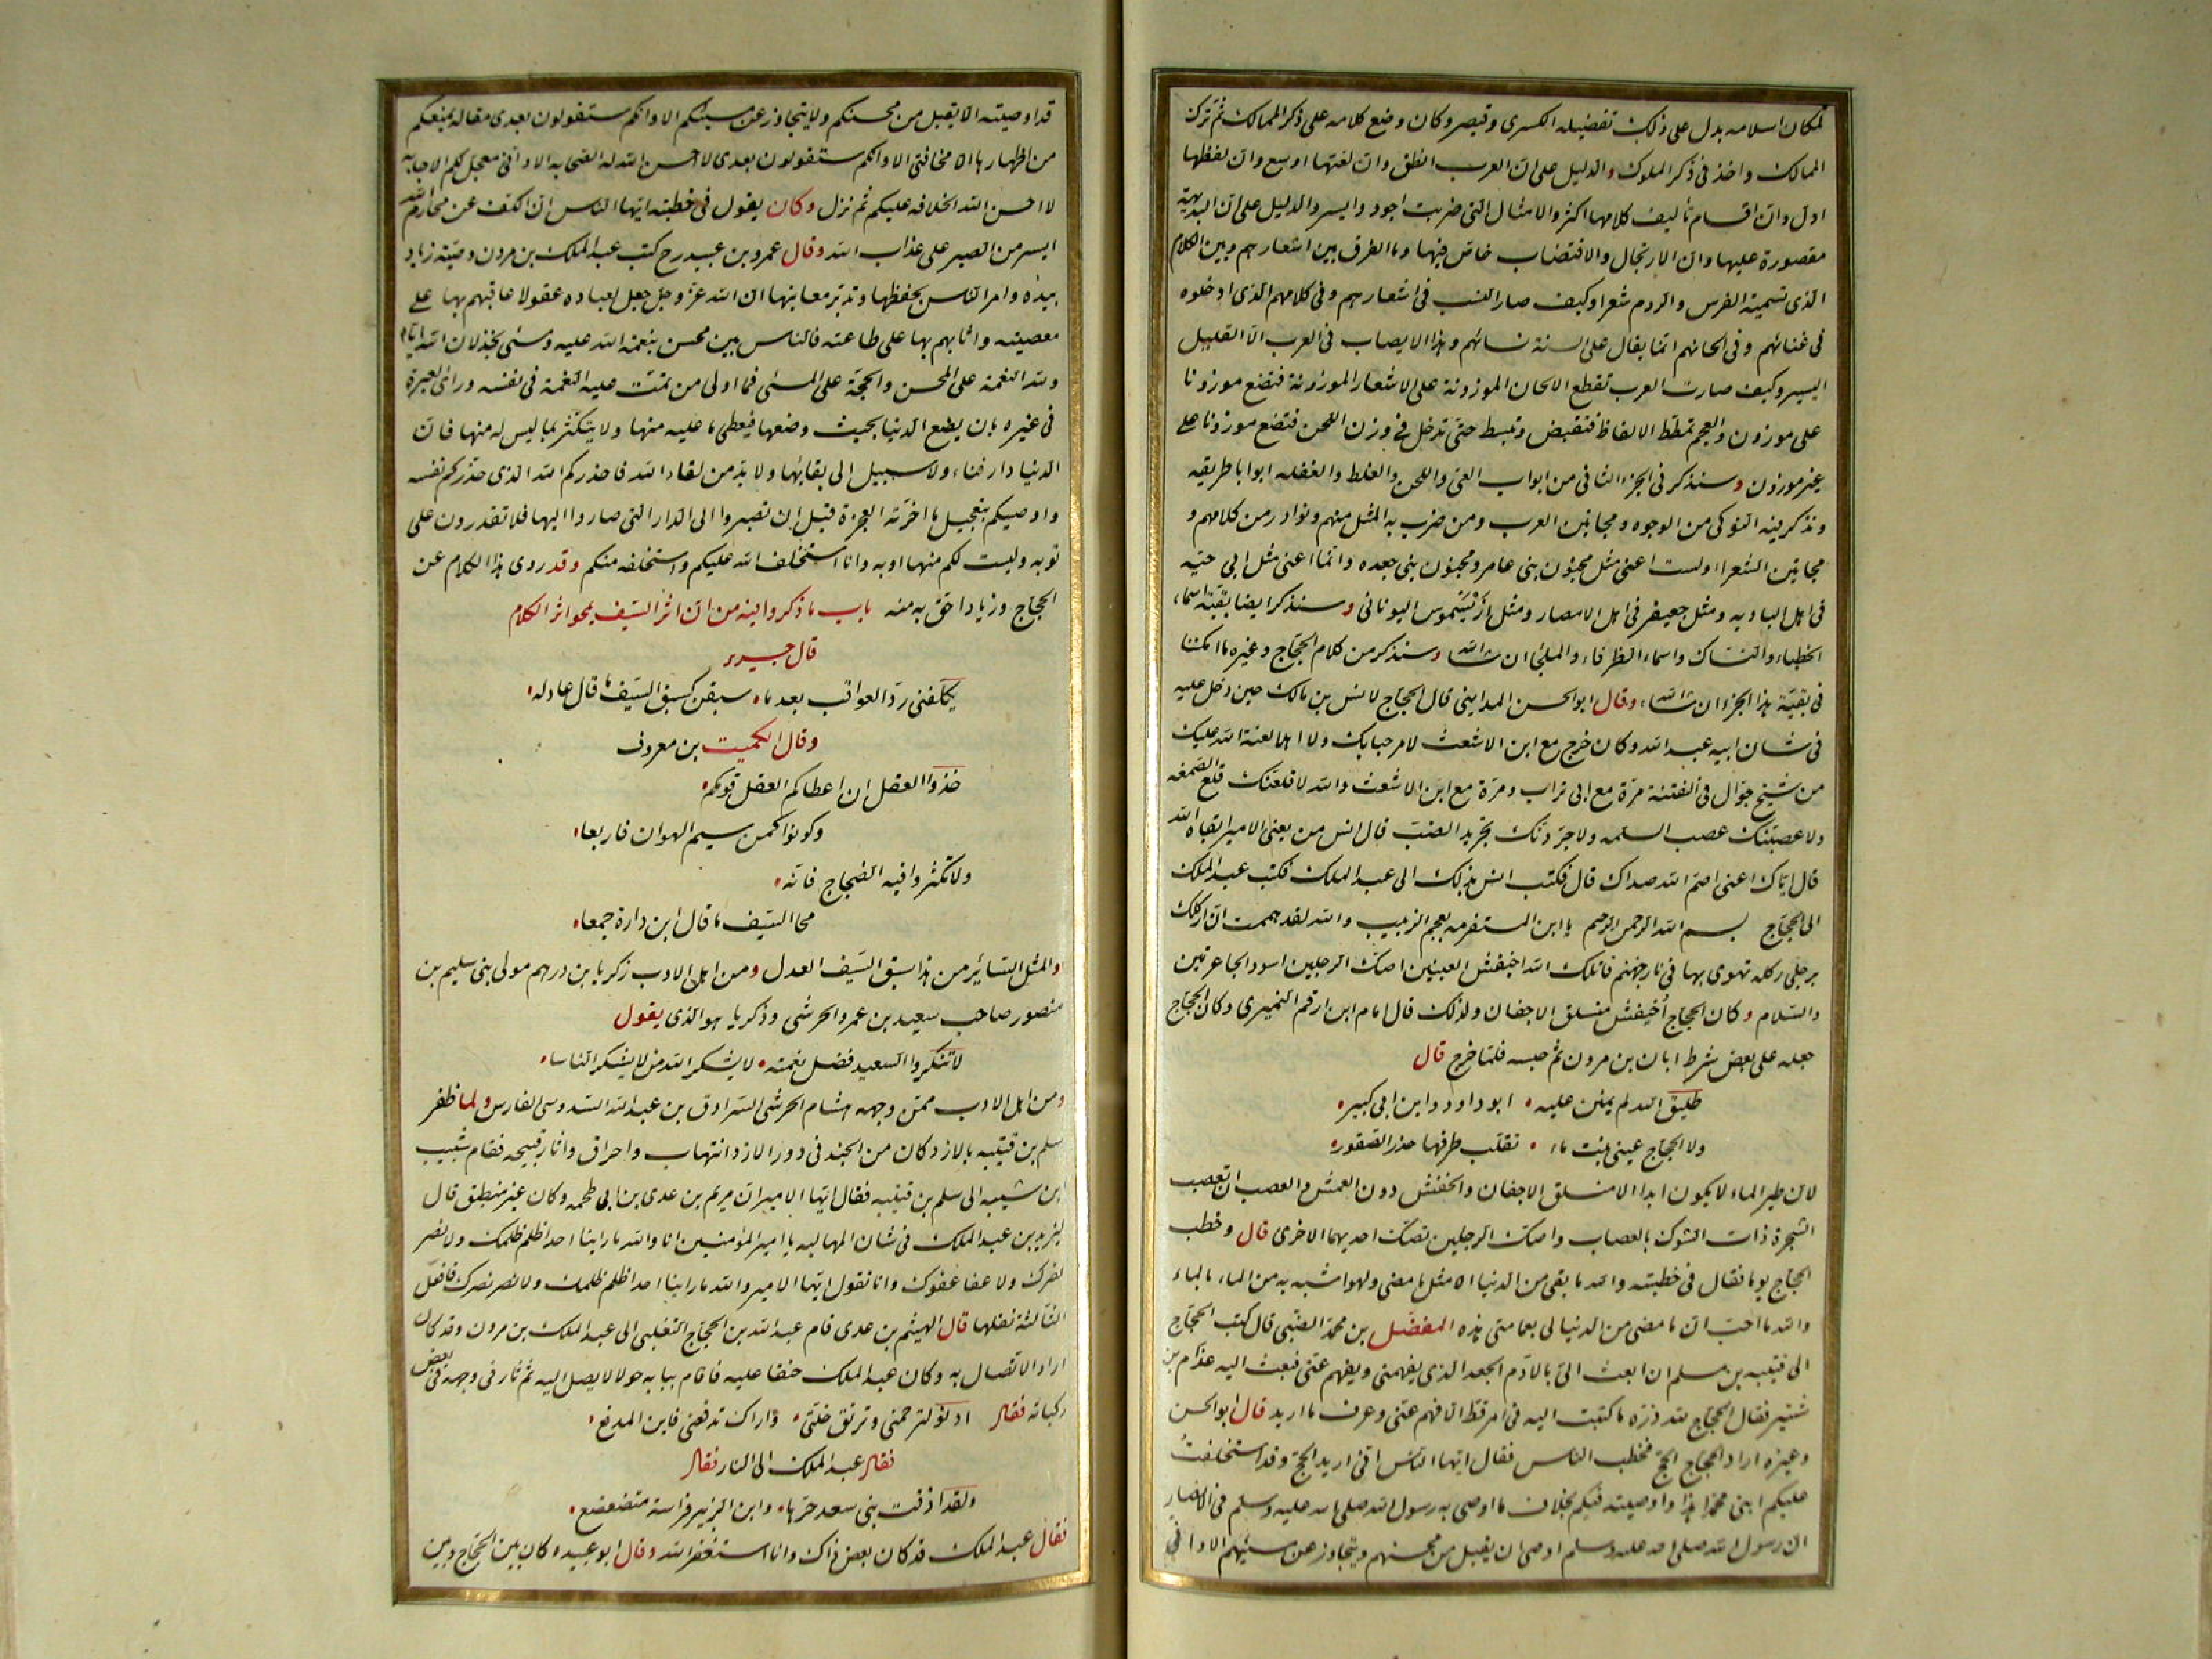 لمكان اسلامه يدل على ذلك تفضيله الكسرى وقيصر وكان وضع كلامه على ذكر الممالك ثم ترك
الممالك واخذ فى ذكر الملوك والدليل على ان العرب انطق وان لغتها اوسع وان لفظها
ادل وان اقسام تأليف كلامها اكثر والامثال التى ضربت اجود وايسر والدليل على ان البديهة
مقصورة عليها وان الارتجال والاقتضاب خاص فيها وما الفرق بين اشعارهم وبين الكلام
الذى تسميه الفرس والروم شعرا وكيف صار النسب فى اشعارهم وفى كلامهم الذى ادخلوه
فى غنائهم وفى الحانهم انما يقال على السنة نسائهم وهذا لا يصاب فى العرب الا القليل
اليسير وكيف صارت العرب تقطع الالحان الموزونة على الاشعار الموزونة فتضع موزونا
على موزون والعجم تمطط الالفاظ فتقبض وتبسط حتى تدخل فى وزن اللحن فتضع موزونا على
غير موزون وسنذكر فى الجزء الثانى من ابواب العى واللحن والغلط والغفله ابوابا طريقه
ونذكر فيه النوكى من الوجوه ومجانين العرب ومن ضرب به المثل منهم ونوادر من كلامهم و
مجانين الشعراء ولست اعنى مثل مجنون بنى عامر ومجنون بنى جعده وانما اعنى مثل ابى حيه
فى اهل الباديه ومثل جعيفر فى اهل الامصار ومثل ارسيموس اليونانى وسنذكر ايضا بقية اسماء
الخطباء والنساك واسماء الظرفاء والملحاء ان شاء الله وسنذكر من كلام الحجاج وغيره ما امكننا
فى بقية هذا الجزء ان شاء الله وقال ابو الحسن المداينى قال الحجاج لانس بن مالك حين دخل عليه
فى شان ابيه عبد الله وكان خرج مع ابن الاشعث لا مرحبا بك ولا اهلا لعنة الله عليك
من شيخ جوال فى الفتنة مرة مع ابى تراب ومرة مع ابن الاشعث والله لاقلعنك قلع الصمغه
ولاعصبنك عصب السلمه ولاجردنك تجريد الضب قال انس من يعنى الامير ابقاه الله
قال اياك اعنى اصم الله صداك قال فكتب انس بذلك الى عبد الملك فكتب عبد الملك
الى الحجاج بسم الله الرحمن الرحيم يا ابن المستفرمه بعجم الزبيب والله لقد هممت ان اركلك
برجلى ركله تهوى بها فى نار جهنم قاتلك الله اخيفش العينين اصك الرجلين اسود الجاعرتين
والسلام وكان الحجاج اخيفش منسلق الاجفان ولذلك قال امام ابن ارقم النميرى وكان الحجاج
جعله على بعض شرط ابان بن مرون ثم حبسه فلما خرج قال
طليق الله لم يمنن عليه ابو داود وابن ابى كبير
ولا الحجاج عينى بنت ماء تقلب طرفها حذر الصقور
لان طير الماء لا يكون ابدا الا منسلق الاجفان والخفش دون العمش والعصب ان تعصب
الشجرة ذات الشوك بالعصاب واصك الرجلين تصك احديهما الاخرى قال وخطب
الحجاج يوما فقال فى خطبته والله ما بقى من الدنيا الا مثل ما مضى ولهو اشبه به من الماء بالماء
والله ما احب ان ما مضى من الدنيا لى بعمامتى هذه المفضل بن محمد الضبى قال كتب الحجاج
الى قتيبه بن مسلم ان ابعث الى بالادم الجعد الذى يفهمنى ويفهم عنى فبعث اليه غدام بن
شتير فقال الحجاج لله دره ما كتبت اليه فى امر قط الا فهم عنى وعرف ما اريد قال ابو الحسن
وغيره اراد الحجاج الحج فخطب الناس فقال ايها الناس انى اريد الحج وقد استخلفت
عليكم ابنى محمدا هذا واوصيته فيكم بخلاف ما اوصى به رسول الله صلى الله عليه وسلم فى الانصار
ان رسول الله صلى الله عليه وسلم اوصى ان يقبل من محسنهم ويتجاوز عن مسيئهم الا وانى
قد اوصيته الا يقبل من محسنكم ولا يتجاوز عن مسيئكم الا وانكم ستقولون بعدى مقاله يمنعكم
من اظهارها الا مخافتى الا وانكم ستقولون بعدى لا احسن الله له الصحابه الا وانى معجل لكم الاجابه
لا احسن الله الخلافه عليكم ثم نزل وكان يقول فى خطبته ايها الناس ان الكف عن محارم الله
ايسر من الصبر على عذاب الله وقال عمرو بن عبيد رح كتب عبد الملك بن مرون وصية زياد
بيده وامر الناس بحفظها وتدبر معانيها ان الله عز وجل جعل لعباده عقولا عاقبهم بها على
معصيته واثابهم بها على طاعته فالناس بين محسن بنعمة الله عليه ومسئ بخذلان الله اياه
ولله النعمة على المحسن والحجة على المسئ فما اولى من تمت عليه النعمة فى نفسه وراى العبرة
فى غيره بان يضع الدنيا بحيث وضعها فيعطى ما عليه منها ولا يتكثر بما ليس له منها فان
الدنيا دار فناء ولا سبيل الى بقائها ولا بد من لقاء الله فاحذركم الله الذى حذركم نفسه
واوصيكم بتعجيل ما اخرته العجزة قبل ان تصيروا الى الدار التى صاروا اليها فلا تقدرون على
توبه وليست لكم منها اوبه وانا استخلف الله عليكم واستخلفه منكم وقد روى هذا الكلام عن
الحجاج وزياد احق به منه باب ما ذكروا فيه من ان اثر السيف يمحو اثر الكلام
قال جرير
يكلفنى رد العواقب بعد ما سبقن كسبق السيف ما قال عاذله
وقال الكميت بن معروف
خذوا العقل ان اعطاكم العقل قومكم
وكونوا كمن سيم الهوان فاربعا
ولا تكثروا فيه الضجاج فانه
محا السيف ما قال ابن دارة جمعا
والمثل السائر من هذا سبق السيف العدل ومن اهل الادب زكريا بن درهم مولى بنى سليم بن
منصور صاحب سعيد بن عمرو الحرشى وذكريا هو الذى يقول
لا تنكروا لسعيد فضل نعمته لا يشكر الله من لا يشكر الناسا
ومن اهل الادب ممن وجهه هشام الحرشى السرادق بن عبد الله السدوسى الفارس ولما ظفر
سلم بن قتيبه بالازد كان من الجند فى دور الازد انتهاب واحراق واثار قبيحه فقام شبيب
ابن شيبه الى سلم بن قتيبه فقال ايها الامير ان هريم بن عدى بن ابى طحمه وكان غير منطيق قال
ليزيد بن عبد الملك فى شان المهالبه يا امير المؤمنين انا والله ما راينا احدا ظلم ظلمك ولا نصر
نصرك ولا عفا عفوك وانا نقول ايها الامير والله ما راينا احدا ظلم ظلمك ولا نصر نصرك فافعل
الثالثة نقلها قال الهيثم بن عدى قام عبد الله بن الحجاج التغلبى الى عبد الملك بن مرون وقد كان
اراد الاتصال به وكان عبد الملك حنقا عليه فاقام ببابه حولا لا يصل اليه ثم ثار فى وجهه فى بعض
ركباته فقال ادنو لترحمنى وترتق خلتى واراك تدفعنى فاين المدفع
فقال عبد الملك الى النار فقال
ولقد اذقت بنى سعد حرها وابن الزبير فراسه متضعضع
فقال عبد الملك قد كان بعض ذاك وانا استغفر الله وقال ابو عبيده كان بين الحجاج وبين